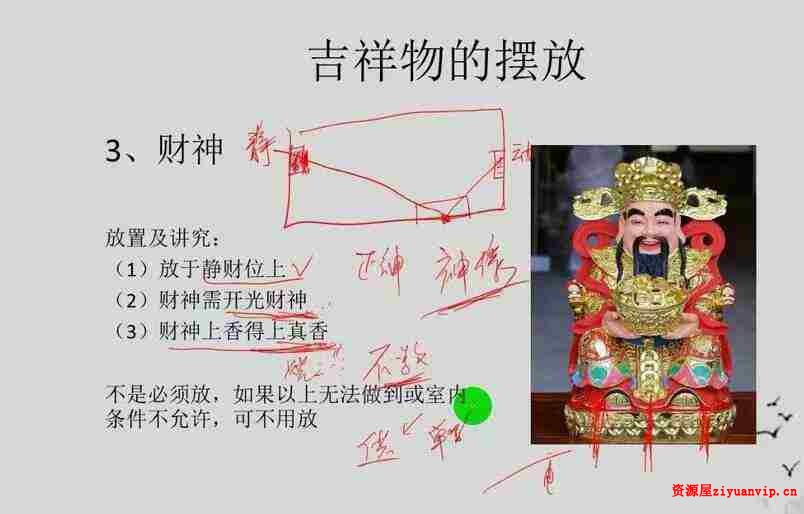 吉祥物的摆放
3、财神
静
动
放置及讲究：
（1）放于静财位上
正神 神像
（2）财神需开光财神
（3）财神上香得上真香
不是必须放，如果以上无法做到或室内
条件不允许，可不用放
资源屋ziyuanvip.cn